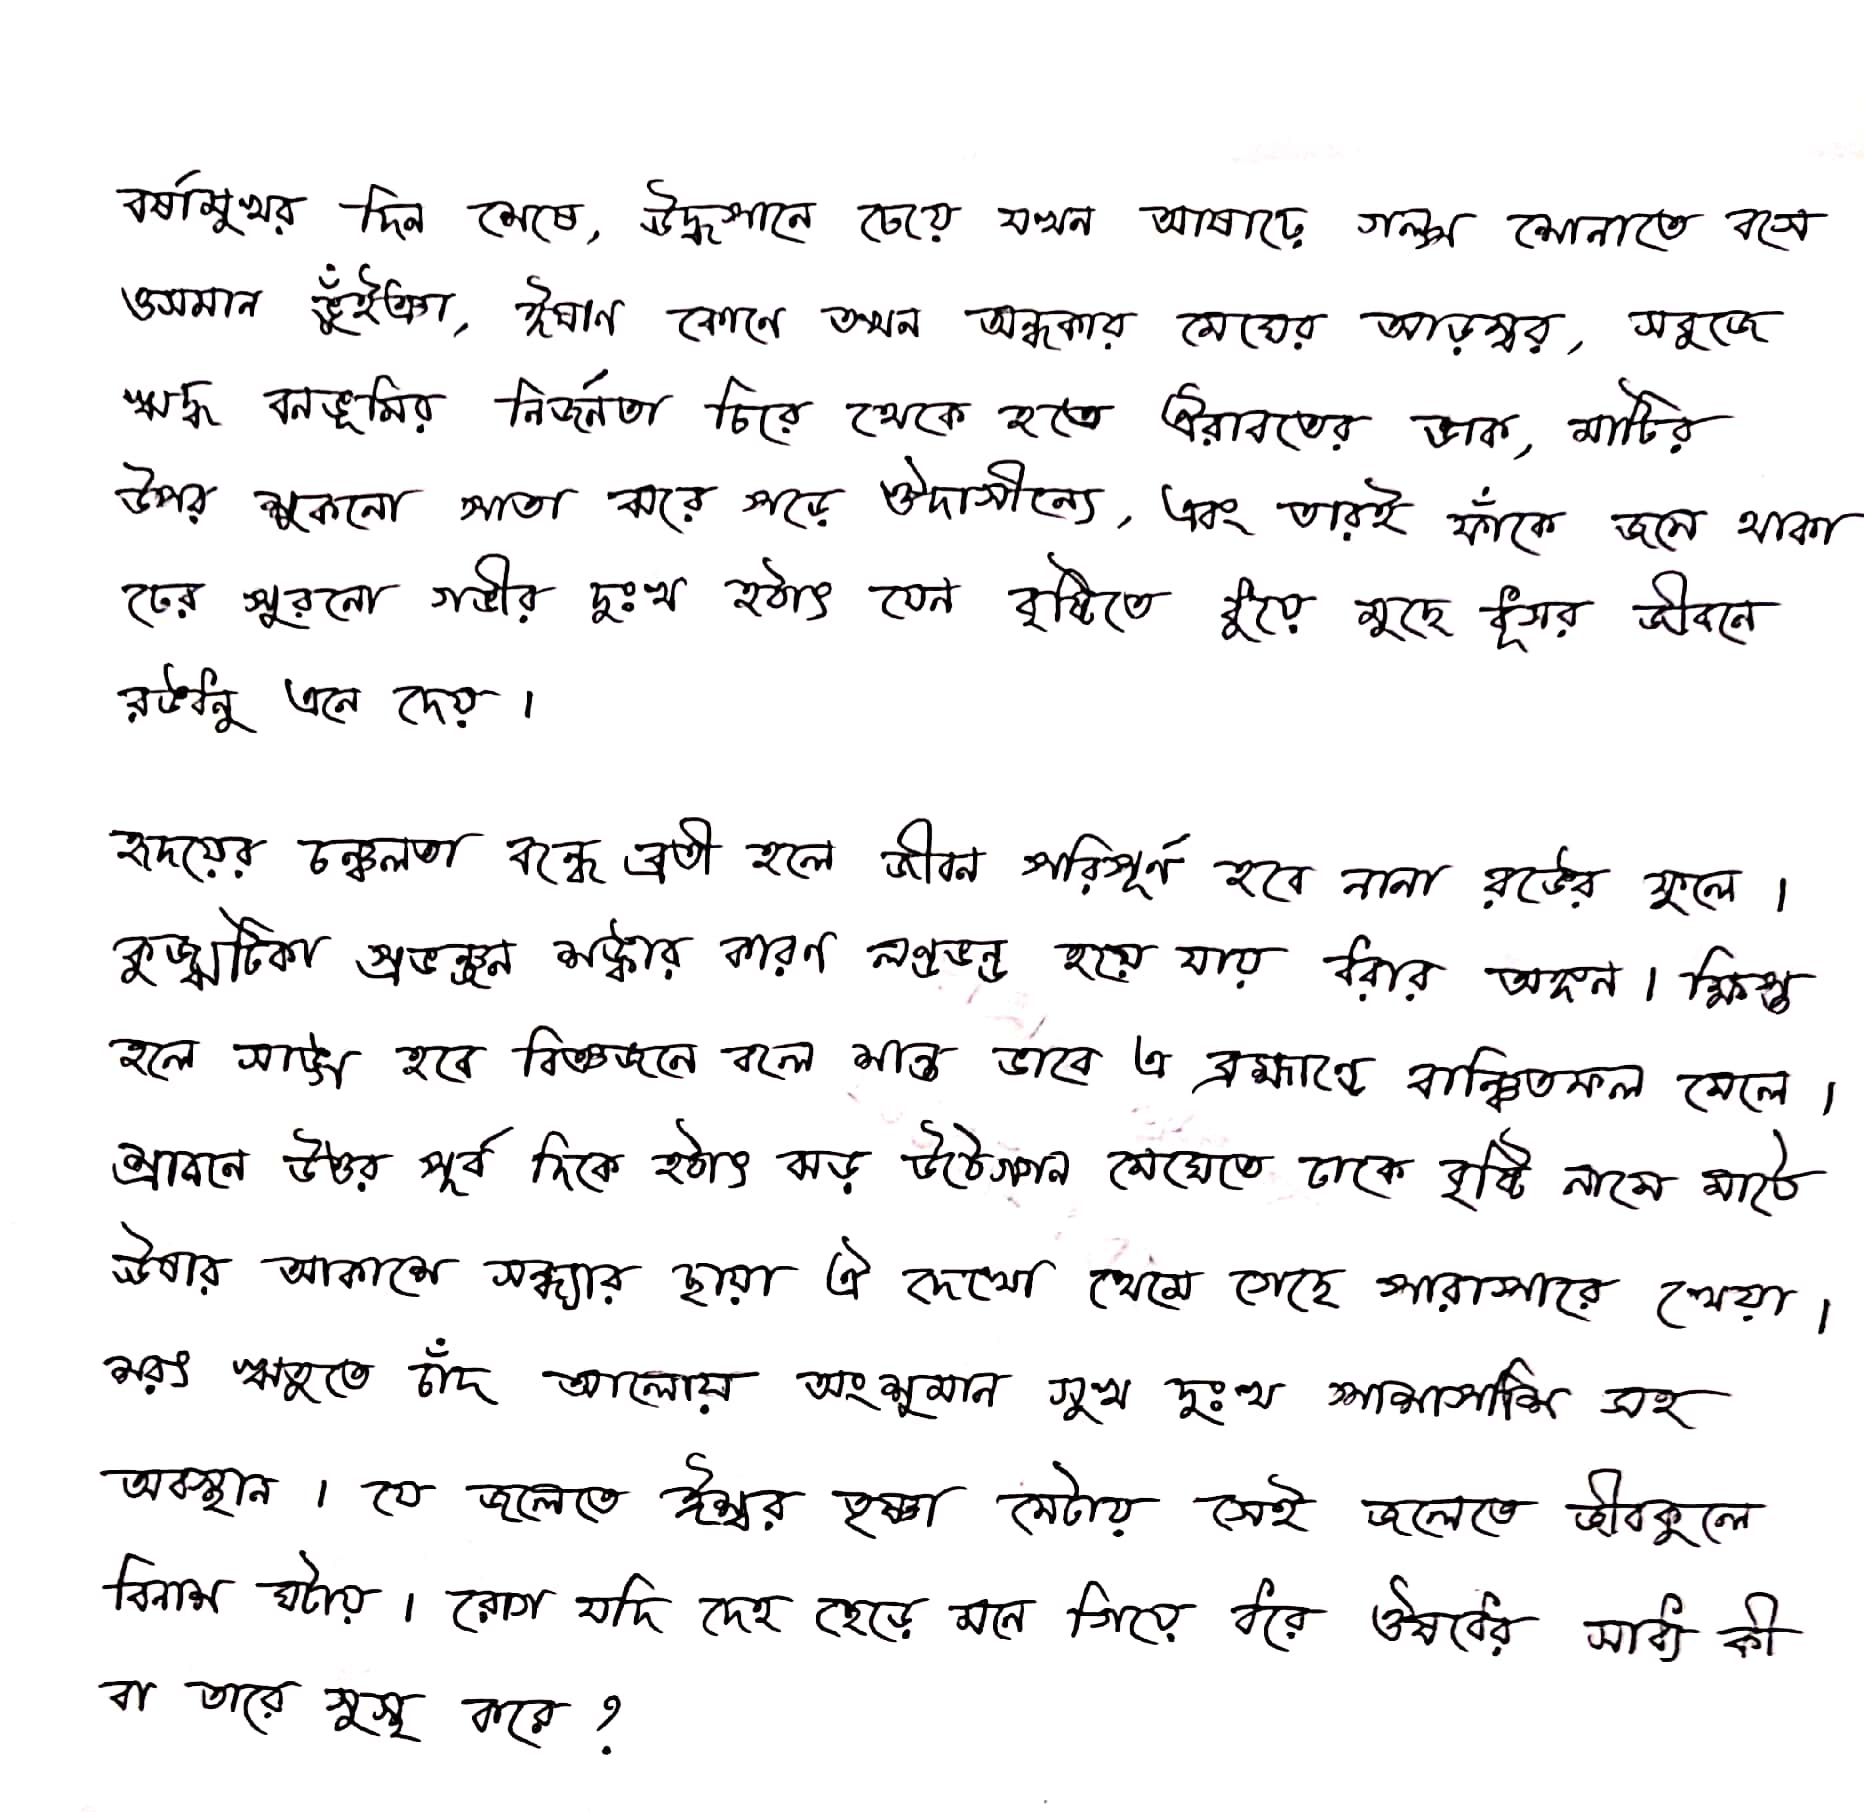 বর্ষামুখর দিন শেষে, ঊর্দ্ধপানে চেয়ে যখন আষাঢ়ে গল্প শোনাতে বসে
ওসমান ভুঁইঞা, ঈষাণ কোণে তখন অন্ধকার মেঘের আড়ম্বর, সবুজে
ঋদ্ধ বনভূমির নির্জনতা চিরে থেকে হতে ঐরাবতের ডাক, মাটির
উপর শুকনো পাতা ঝরে পড়ে ঔদাসীন্যে, এবং তারই ফাঁকে জমে থাকা
ঢের পুরনো গভীর দুঃখ হঠাৎ যেন বৃষ্টিতে ধুঁয়ে মুছে ধূসর জীবনে
রঙধনু এনে দেয়।
হৃদয়ের চঞ্চলতা বন্ধে ব্রতী হলে জীবন পরিপূর্ণ হবে নানা রঙের ফুলে।
কুজ্ঝটিকা প্রভঞ্জন শঙ্কার কারণ লণ্ডভণ্ড হয়ে যায় ধরার অঙ্গন। ক্ষিপ্ত
হলে সাঙ্গ হবে বিজ্ঞজনে বলে শান্ত ভাবে এ ব্রহ্মাণ্ডে বাঞ্ছিতফল মেলে।
শ্রাবনে উত্তর পূর্ব দিকে হঠাৎ ঝড় উঠে গগন মেঘেতে ঢাকে বৃষ্টি নামে মাঠে
ঊষার আকাশে সন্ধ্যার ছায়া ঐ দেখো থেমে গেছে পারাপারে খেয়া।
শরৎ ঋতুতে চাঁদ আলোয় অংশুমান সুখ দুঃখ পাশাপাশি সহ
অবস্থান। যে জলেতে ঈশ্বর তৃষ্ণা মেটায় সেই জলেতে জীবকুলে
বিনাশ ঘটায়। রোগ যদি দেহ ছেড়ে মনে গিয়ে ধরে ঔষধের সাধ্য কী
বা তারে সুস্থ করে?